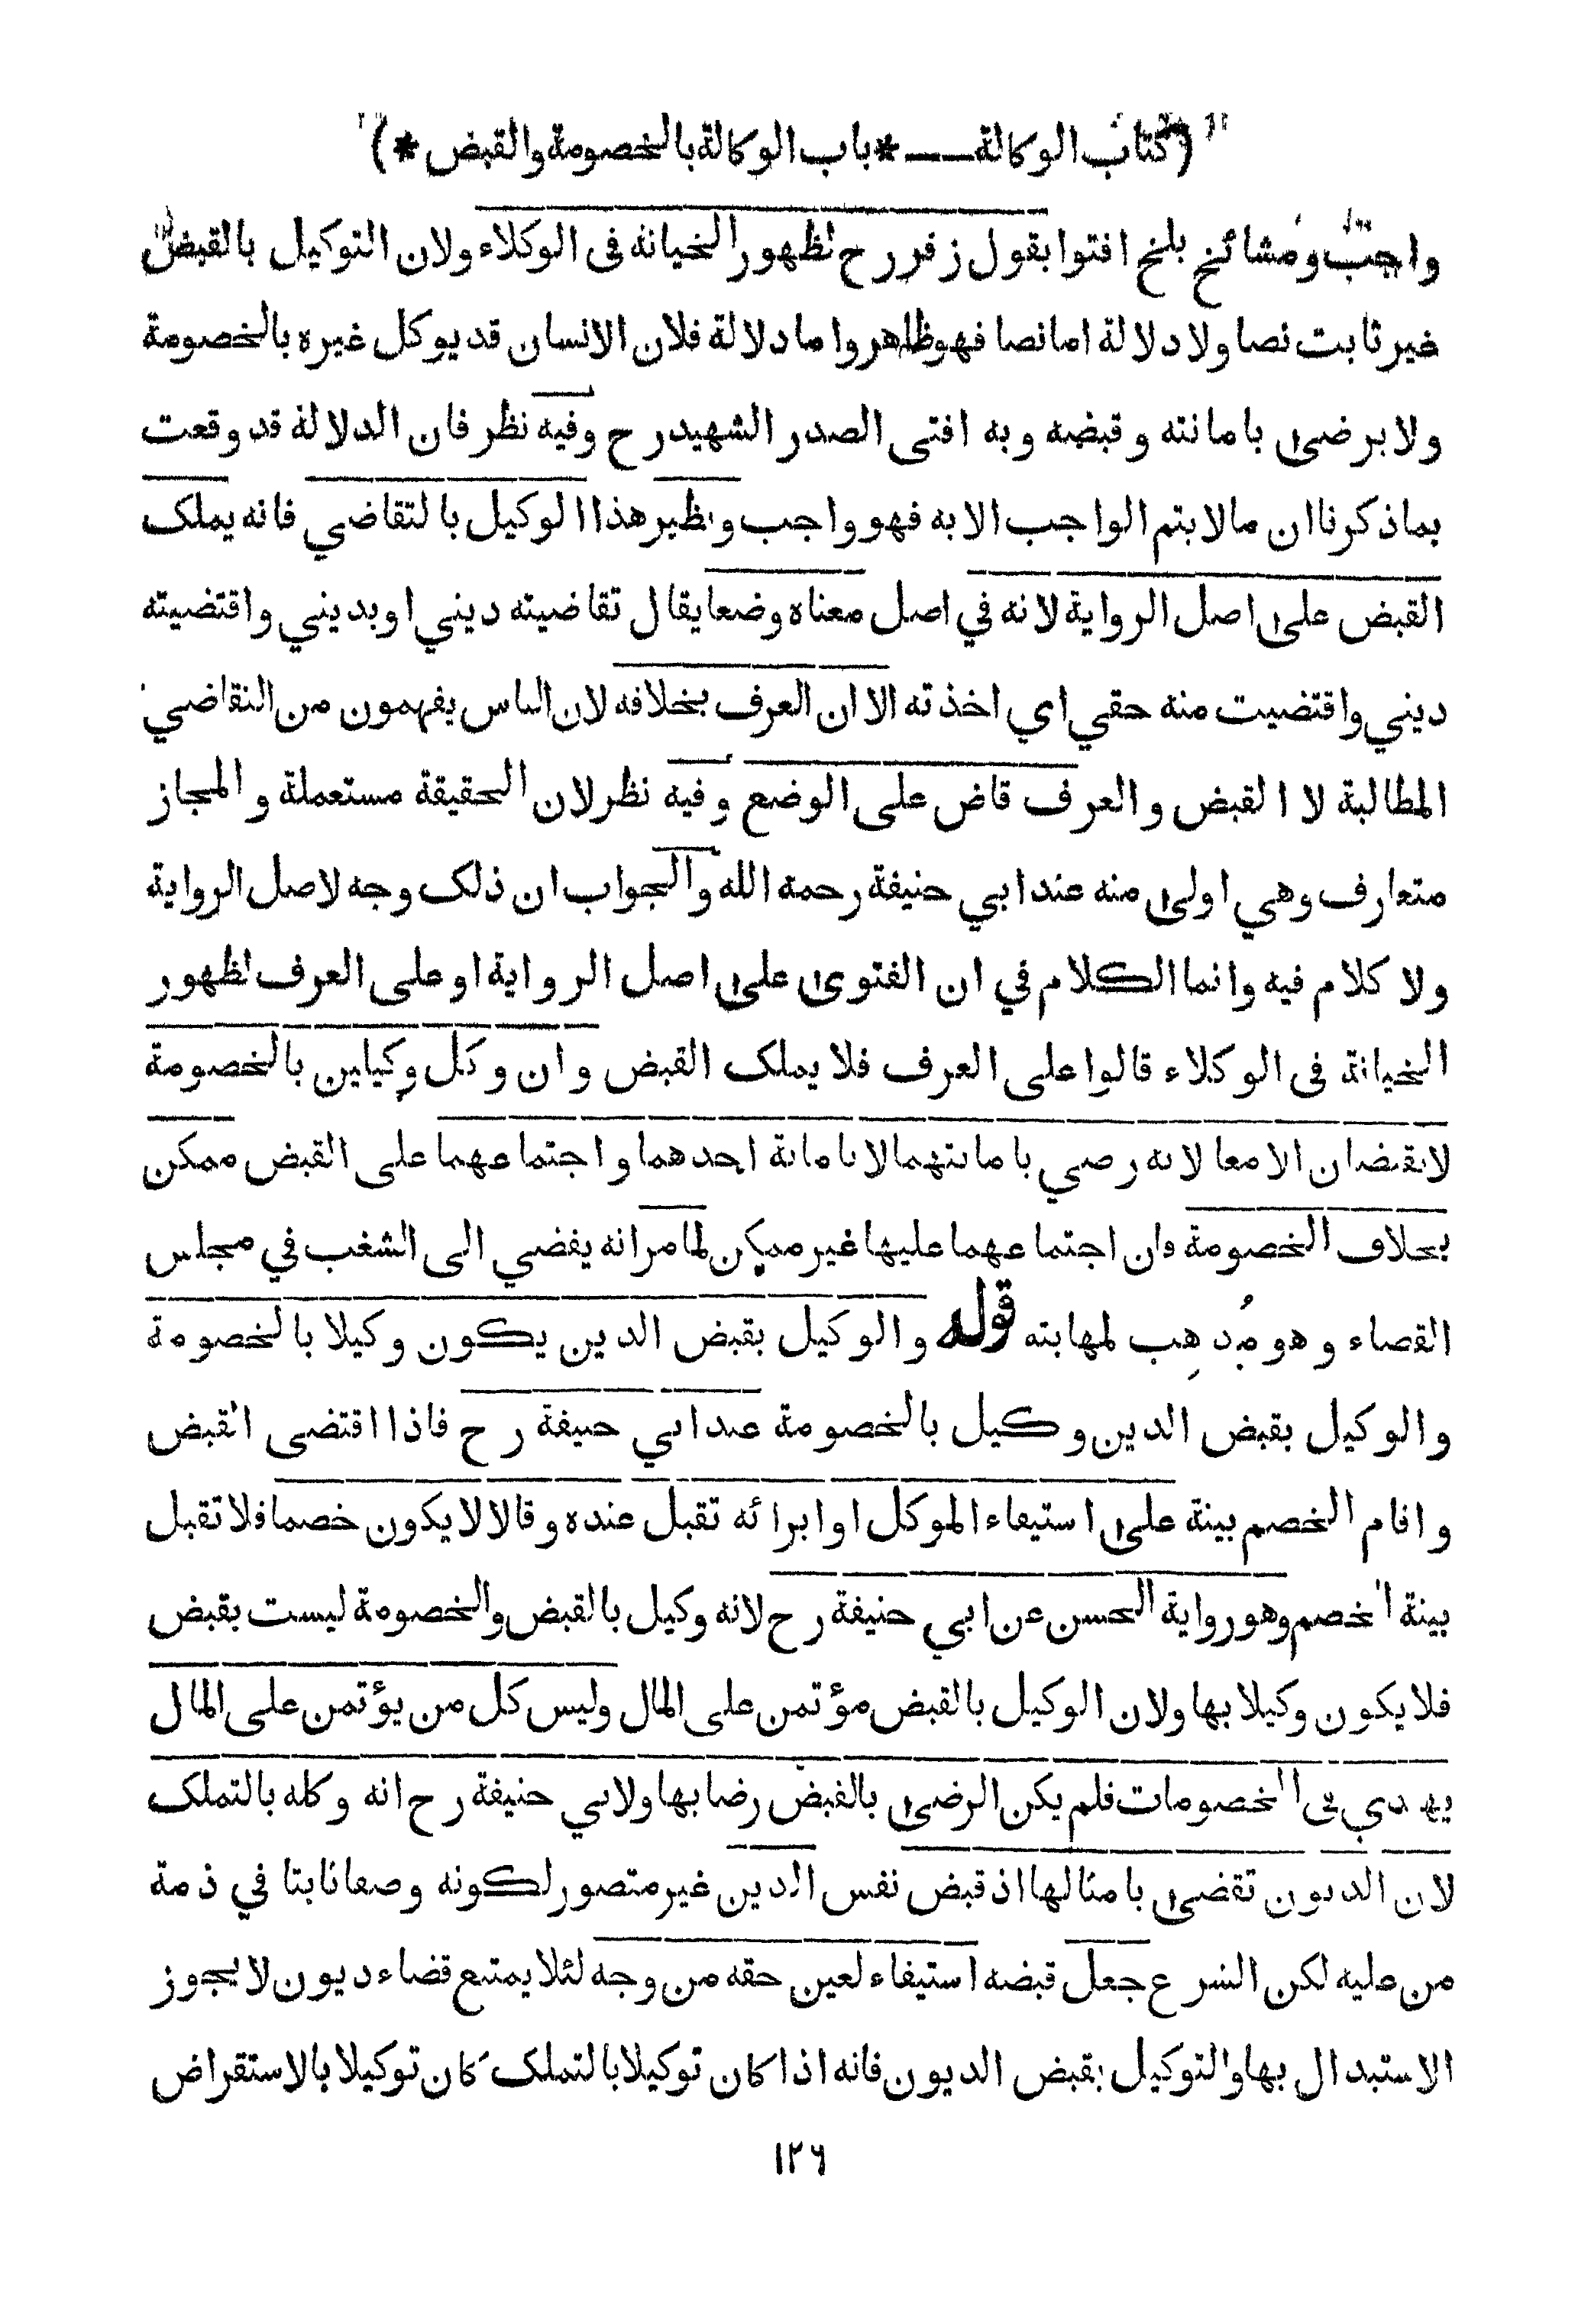 (كتاب الوكالة ــــ * باب الوكالة بالخصومة والقبض *)
واجب ومشائخ بلخ افتوا بقول زفر رح لظهور الخيانة فى الوكلاء ولان التوكيل بالقبض
غير ثابت نصا ولا دلالة اما نصا فهو ظاهر واما دلالة فلان الانسان قد يوكل غيره بالخصومة
ولا يرضى بامانته وقبضه وبه افتى الصدر الشهيد رح وفيه نظر فان الدلالة قد وقعت
بما ذكرنا ان مالا يتم الواجب الا به فهو واجب ونظير هذا الوكيل بالتقاضي فانه يملك
القبض على اصل الرواية لانه في اصل معناه وضعا يقال تقاضيته ديني او بديني واقتضيته
ديني واقتضيت منه حقي اي اخذته الا ان العرف بخلافه لان الناس يفهمون من التقاضي
المطالبة لا القبض والعرف قاض على الوضع وفيه نظر لان الحقيقة مستعملة والمجاز
متعارف وهي اولى منه عند ابي حنيفة رحمه الله والجواب ان ذلك وجه لاصل الرواية
ولا كلام فيه وانما الكلام في ان الفتوى على اصل الرواية او على العرف لظهور
الخيانة فى الوكلاء قالوا على العرف فلا يملك القبض وان وكل وكيلين بالخصومة
لا يقبضان الا معا لانه رضي بامانتهما لا بامانة احدهما واجتماعهما على القبض ممكن
بخلاف الخصومة فان اجتماعهما عليها غير ممكن لما مر انه يفضي الى الشغب في مجلس
القضاء وهو مذهب لمهابته قوله والوكيل بقبض الدين يكون وكيلا بالخصومة
والوكيل بقبض الدين وكيل بالخصومة عند ابي حنيفة رح فاذا اقتضى القبض
واقام الخصم بينة على استيفاء الموكل او ابرائه تقبل عنده وقالا لا يكون خصما فلا تقبل
بينة الخصم وهو رواية الحسن عن ابي حنيفة رح لانه وكيل بالقبض والخصومة ليست بقبض
فلا يكون وكيلا بها ولان الوكيل بالقبض مؤتمن على المال وليس كل من يؤتمن على المال
يهتدي فى الخصومات فلم يكن الرضى بالقبض رضا بها ولابي حنيفة رح انه وكله بالتملك
لان الديون تقضى بامثالها اذ قبض نفس الدين غير متصور لكونه وصفا ثابتا في ذمة
من عليه لكن الشرع جعل قبضه استيفاء لعين حقه من وجه لئلا يمتنع قضاء ديون لا يجوز
الاستبدال بها والتوكيل بقبض الديون فانه اذا كان توكيلا بالتملك كان توكيلا بالاستقراض
١٢٦